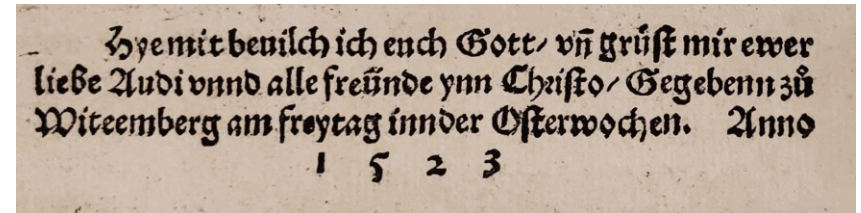 Hye mit beuilch ich euch Gott/ vn̄ grüſt mir ewer
liebe Audi vnnd alle freünde ynn Chriſto/ Gegebenn zů
Witeemberg am freytag inn der Oſterwochen. Anno
1 5 2 3